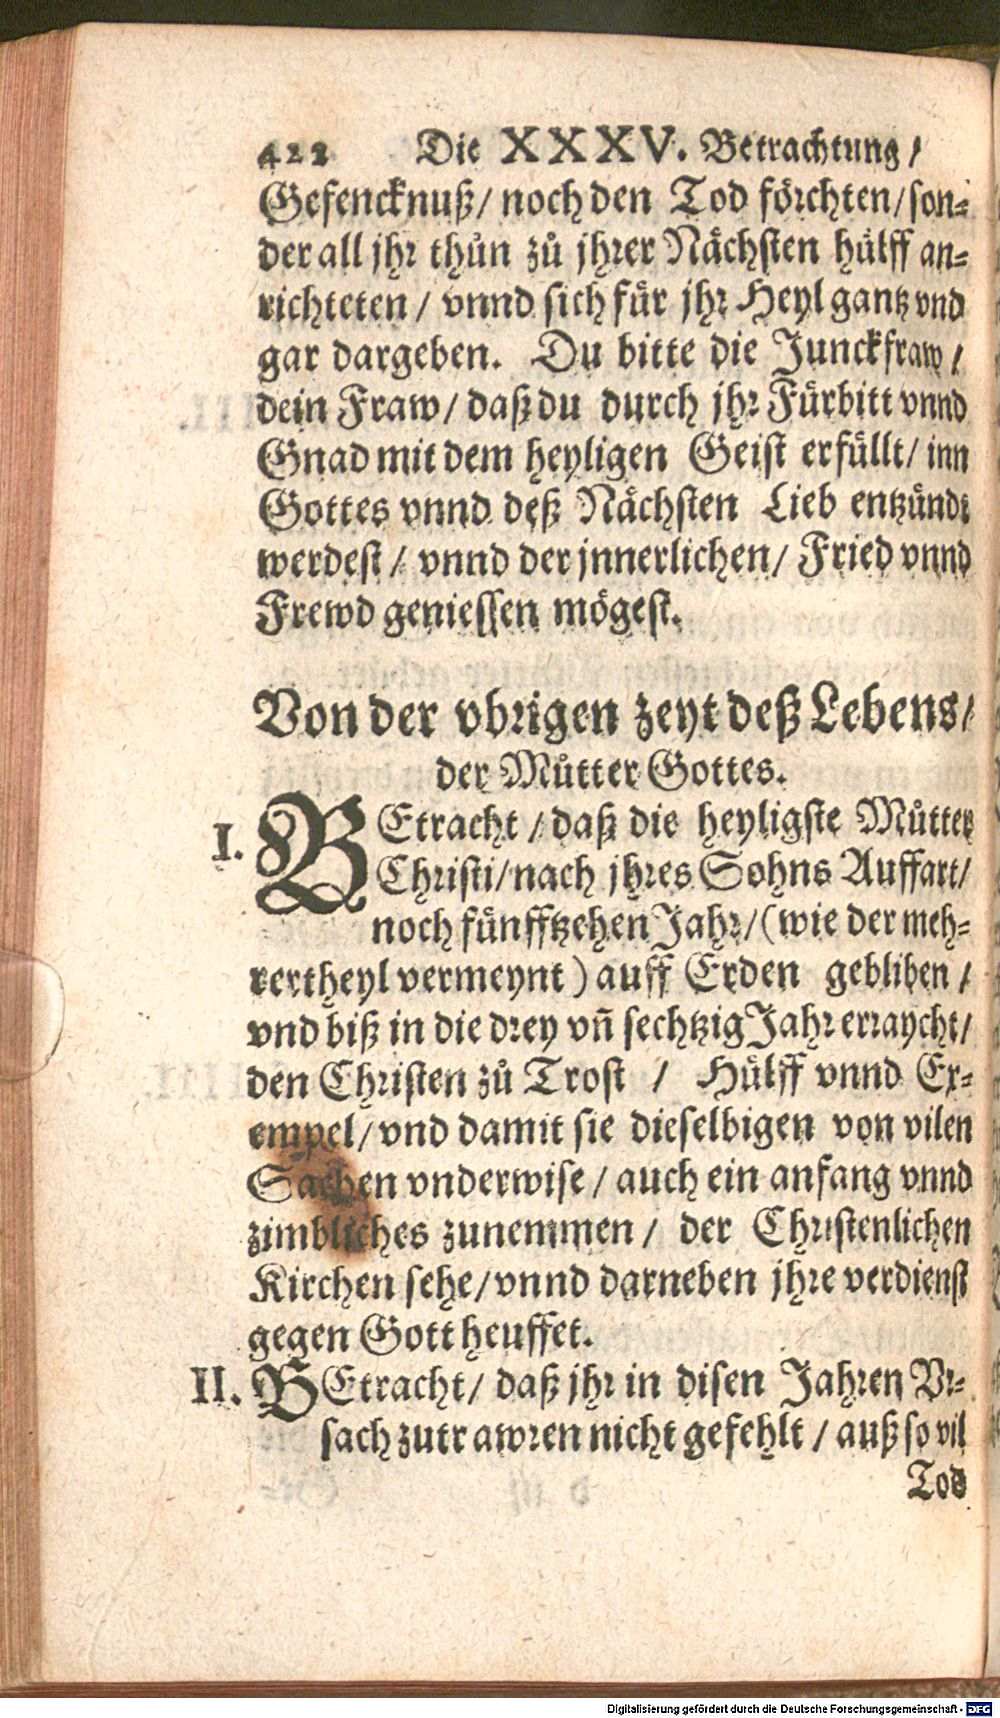 422 Die XXXV. Betrachtung /
Gefencknuß / noch den Tod föꝛchten / son⸗
der all jhꝛ thůn zů jhrer Nächsten hülff an⸗
richteten / vnnd sich für jhꝛ Heyl gantz vnd
gar dargeben. Du bitte die Junckfraw /
dein Fraw / daß du durch jhꝛ Fürbitt vnnd
Gnad mit dem heyligen Geist erfüllt / inn
Gottes vnnd deß Nächsten Lieb entzündt
werdest / vnnd der jnnerlichen / Fried vnnd
Frewd geniessen mögest.
Von der vbꝛigen zeyt deß Lebens /
der Můtter Gottes.
I. BEtracht / daß die heyligste Můtter
Chꝛisti / nach jhꝛes Sohns Auffart /
noch fünfftzehen Jahꝛ / (wie der meh⸗
rertheyl vermeynt) auff Erden gebliben /
vnd biß in die dꝛey vñ sechtzig Jahꝛ erꝛaycht /
den Chꝛisten zů Trost / Hülff vnnd Ex⸗
empel / vnd damit sie dieselbigen von vilen
Sachen vnderwise / auch ein anfang vnnd
zimbliches zunemmen / der Chꝛistenlichen
Kirchen sehe / vnnd darneben jhꝛe verdienst
gegen Gott heuffet.
II. BEtracht / daß jhꝛ in disen Jahꝛen Vꝛ⸗
sach zutrawꝛen nicht gefehlt / auß so vil
Tod
Digitalisierung gefördert durch die Deutsche Forschungsgemeinschaft - DFG